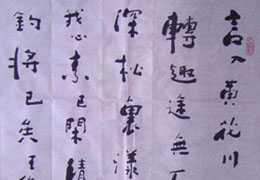 言入黃花川
轉趣途無
深松裏漾
我心素已閑清
釣將已矣王